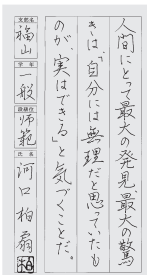 人間にとって最大の発見、最大の驚
きは、「自分には無理だと思っていたも
のが、実はできる」と気づくことだ。
支部名
福山
学年
一般
段級位
師範
氏名
河口柏扇